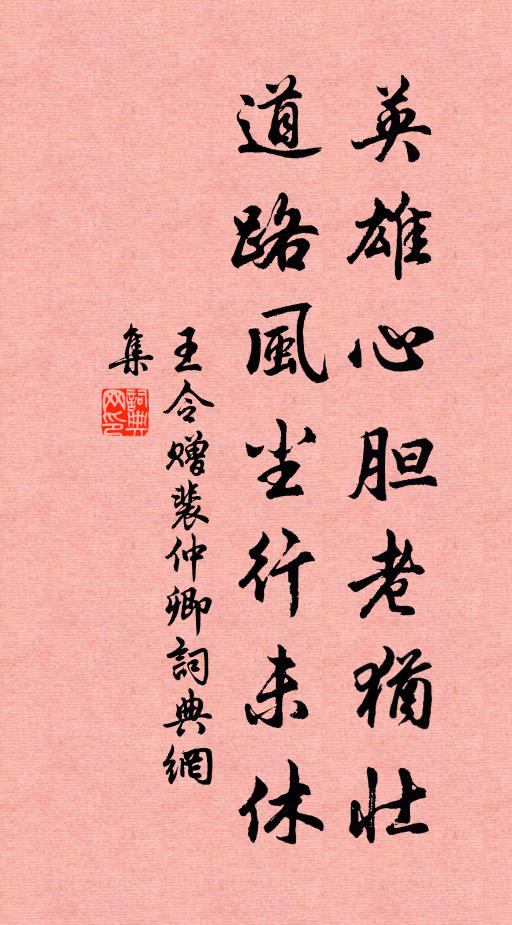 英雄心胆老猶壯
道路風尘行未休
王令赠裴仲卿詞典網
集
詞典网印